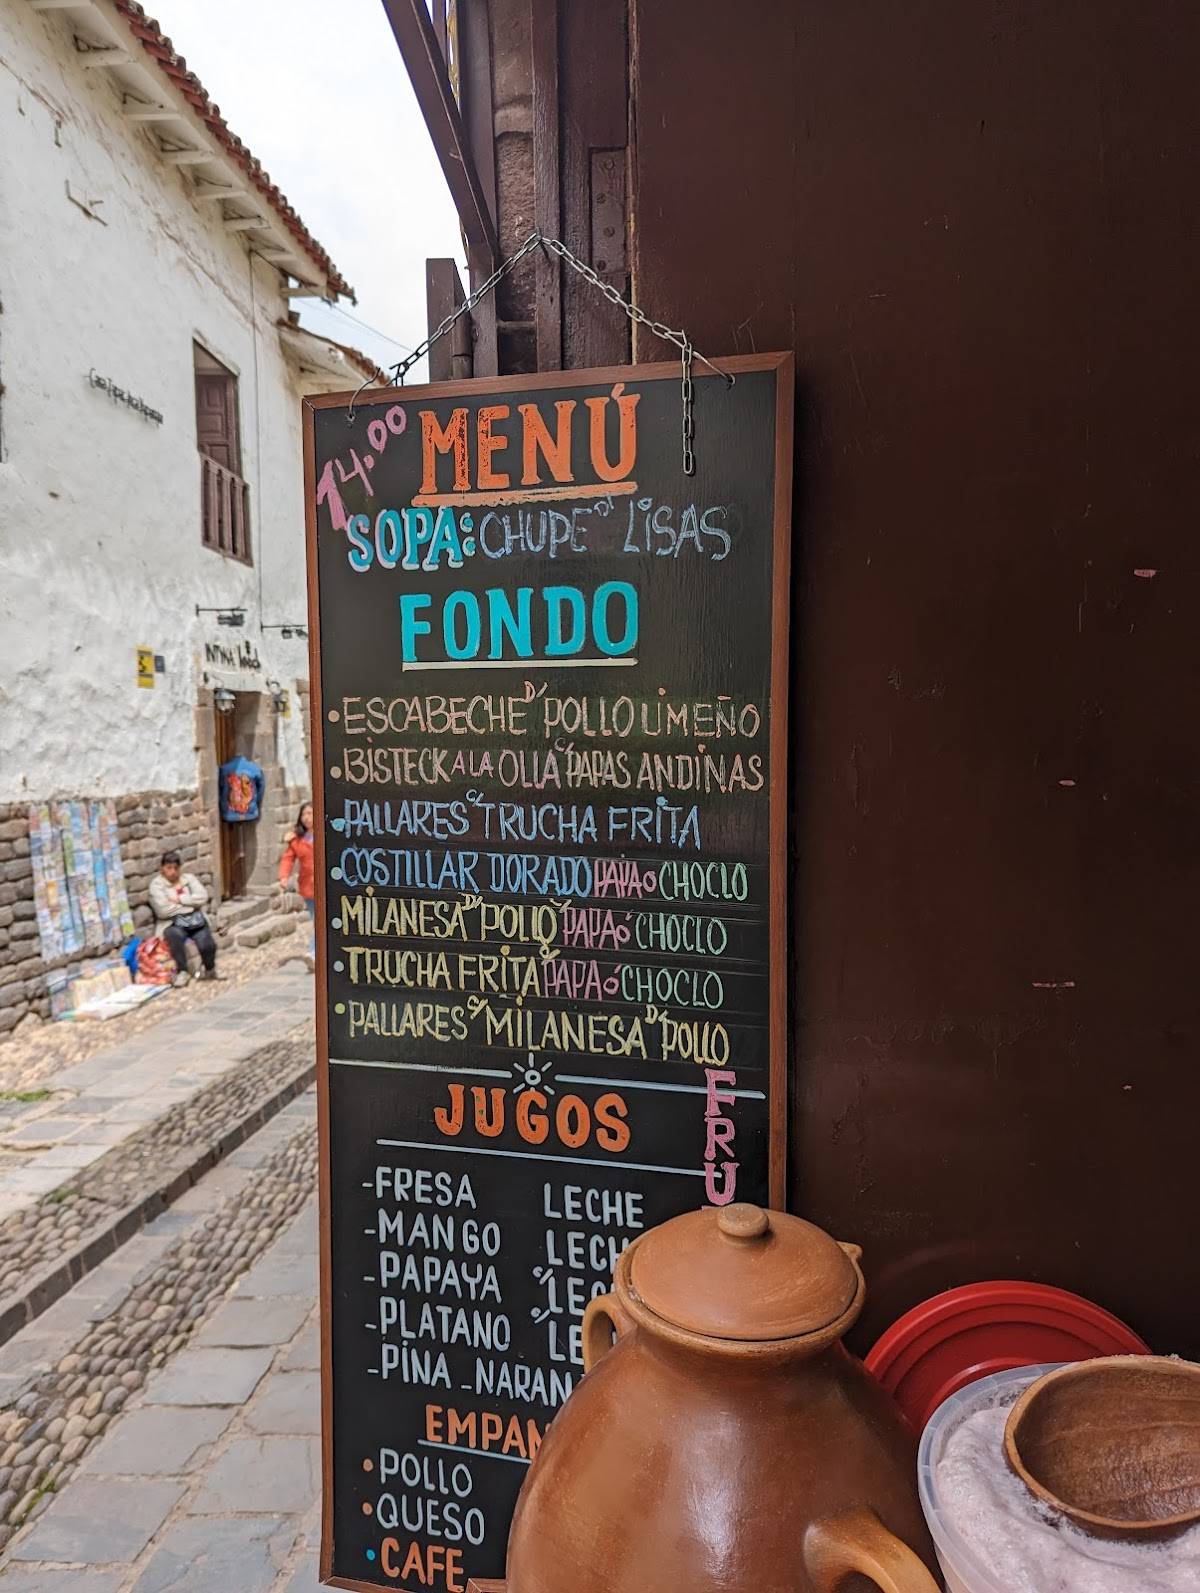 14.00
MENÚ
SOPA: CHUPE D' LISAS
FONDO
• ESCABECHE D' POLLO LIMEÑO
• BISTECK A LA OLLA C/ PAPAS ANDINAS
• PALLARES C/ TRUCHA FRITA
• COSTILLAR DORADO PAPA O CHOCLO
• MILANESA D' POLLO C/ PAPA Ó CHOCLO
• TRUCHA FRITA C/ PAPA Ó CHOCLO
• PALLARES C/ MILANESA D' POLLO
JUGOS
FRU
-FRESA LECHE
-MANGO LECH
-PAPAYA C/ LEC
-PLATANO C/ LE
-PIÑA -NARAN
EMPAN
• POLLO
• QUESO
• CAFE